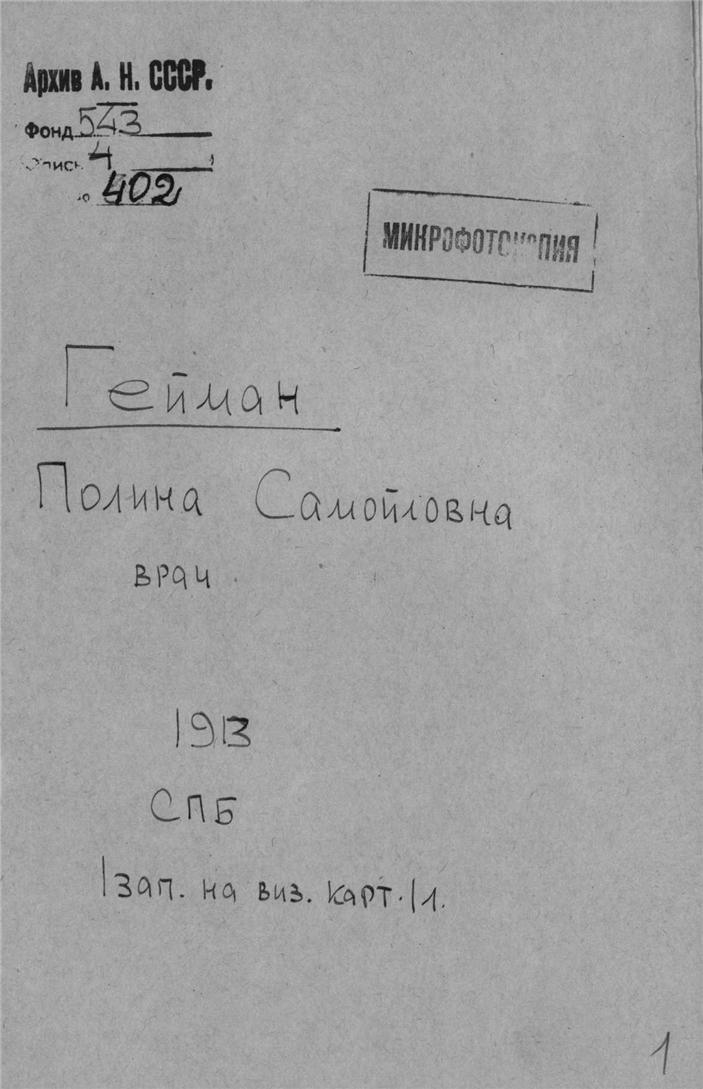 Архив А. Н. СССР.
Фонд 543
Опись 4
№ 402
МИКРОФОТОКОПИЯ
Гейман
Полина Самойловна
врач
1913
СПБ
|зап. на виз. карт.| 1.
1